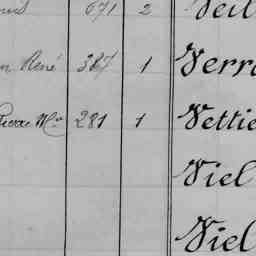 671 2 Veil
n René 387 1 Verr
Pierre Mie 281 1 Vettie
Viel
Viel